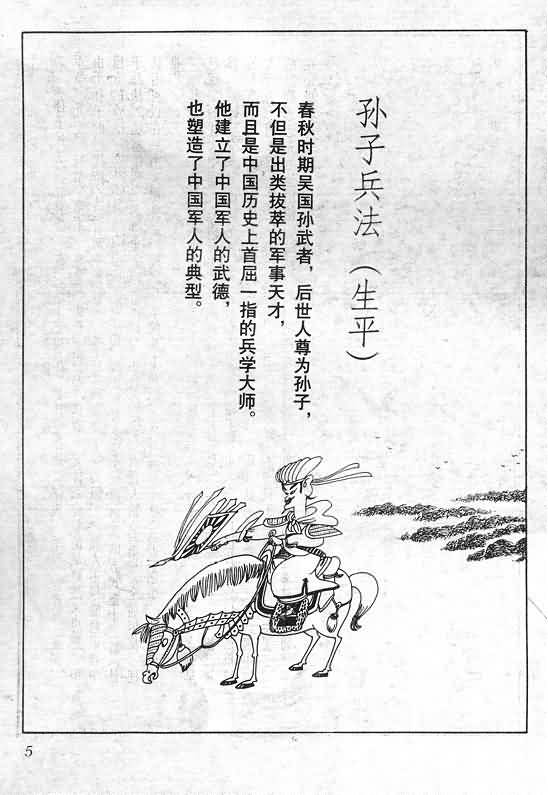 孙子兵法（生平）
春秋时期吴国孙武者，后世人尊为孙子，
不但是出类拔萃的军事天才，
而且是中国历史上首屈一指的兵学大师。
他建立了中国军人的武德，
也塑造了中国军人的典型。
5